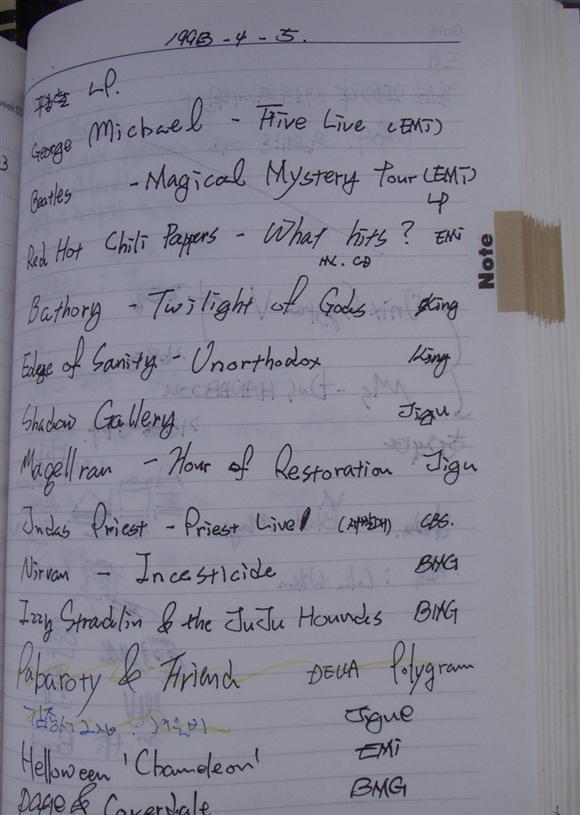 1993 - 4 - 5.
LP.
George Michael - Five Live (EMI)
Beatles - Magical Mystery Tour (EMI)
LP
Red Hot Chili Pappers - What hits? EMi
CD
Bathory - Twilight of Gods King
Edge of Sanity - Unorthodox King
Shadow Gallery Jigu
Magellran - Hour of Restoration Jigu
Judas Priest - Priest Live! (재발매) CBS.
Nirvan - Incesticide BMG
Izzy Stradlin & the JuJu Hounds BMG
Pabaroty & Friend DECCA Polygram
겨울비 Jigue
Helloween 'Chameleon' EMi
Page & Coverdale BMG
Note